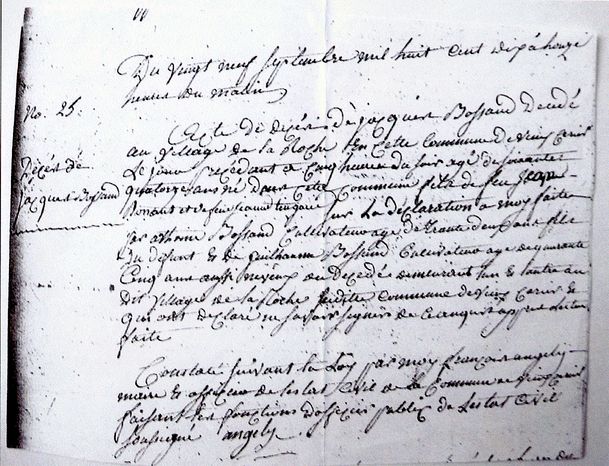 Du vingt neuf septembre mil huit cent dix à honze
heures du matin
No. 25.
Décès de
jacques Bossand
Acte de décès de jacques Bossand Décédé
au village de la Roche en cette Commune de
Le jour précédant a Cinq heures du soir agé de soixante
quatorze ans né dans cette Commune fils de feu jean
Bossand et de feu jeanne sur La déclaration a moy faitte
par Bossand Cultivateur agé de trante deux ans fils
du défunt & de Guilhaume Bossand Cultivateur age de quarante
Cinq ans aussi neveux du Décédé demeurant lun & lautre au
dit village de la Roche susditte commune de &
qui ont déclaré ne savoir signer de ce enquis apres lecture
faitte
Constaté suivant la Loy par moy françois angely
maire & officier de lestat Civil de la Commune de
faisant les fonctions dofficier public de Lestat Civil
soussigné angely.